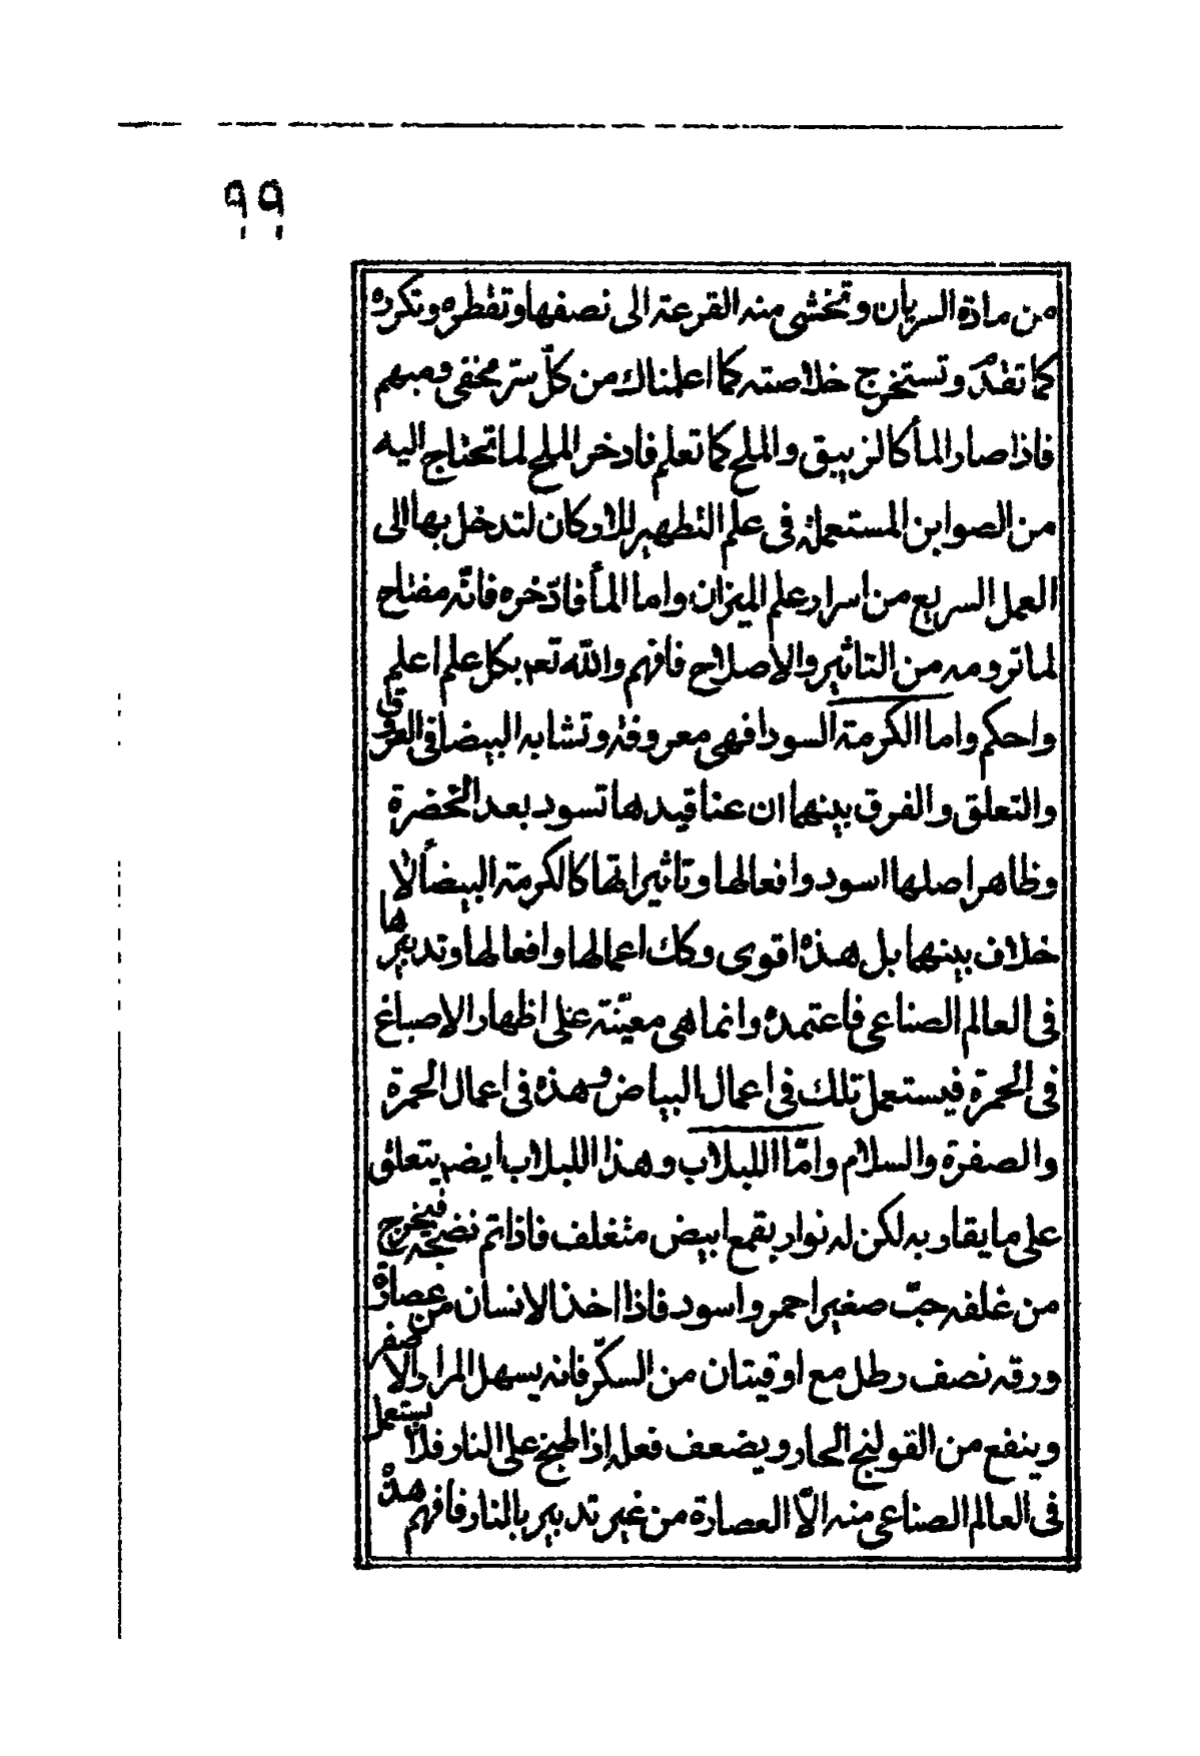 ٩٩
من مادة السريان وتحشى منه القرعة الى نصفها وتقطره وتكرره
كما تقدّم وتستخرج خلاصته كما اعلمناك من كلّ سرّ مخفى ومبهم
فاذا صار المأ كالزيبق والملح كما تعلم فادخر الملح لما تحتاج اليه
من الصوابن المستعملة فى علم التطهير للاركان لتدخل بها الى
العمل السريع من اسرار علم الميزان واما المأ فادّخره فانّه مفتاح
لما ترومه من التاثير والاصلاح فافهم والله تعم بكل علم اعلم
واحكم واما الكرمة السودا فهى معروفة وتشابه البيضا فى العروق
والتعلق والفرق بينهما ان عناقيدها تسود بعد الخضرة
وظاهر اصلها اسود وافعالها وتاثيراتها كالكرمة البيضأ لا
خلاف بينهما بل هذه اقوى وكك اعمالها وافعالها وتدبيرها
فى العالم الصناعى فاعتمده وانما هى معيّنة على اظهار الاصباغ
فى الحمرة فيستعمل تلك فى اعمال البياض وهذه فى اعمال الحمرة
والصفرة والسلام وامّا اللبلاب وهذا اللبلاب ايضم يتعلق
على ما يقاربه لكن له نوار بقمع ابيض متغلف فاذا تم نضجه فيخرج
من غلفه حبّ صغير احمر واسود فاذا اخذ الانسان من عصارة
ورقه نصف رطل مع اوقيتان من السكّر فانه يسهل المرار الاصفر
وينفع من القولنج الحار ويضعف فعله إذا طبخ على النار فلا يستعمل
فى العالم الصناعى منه الاّ العصارة من غير تدبير بالنار فافهم هذه